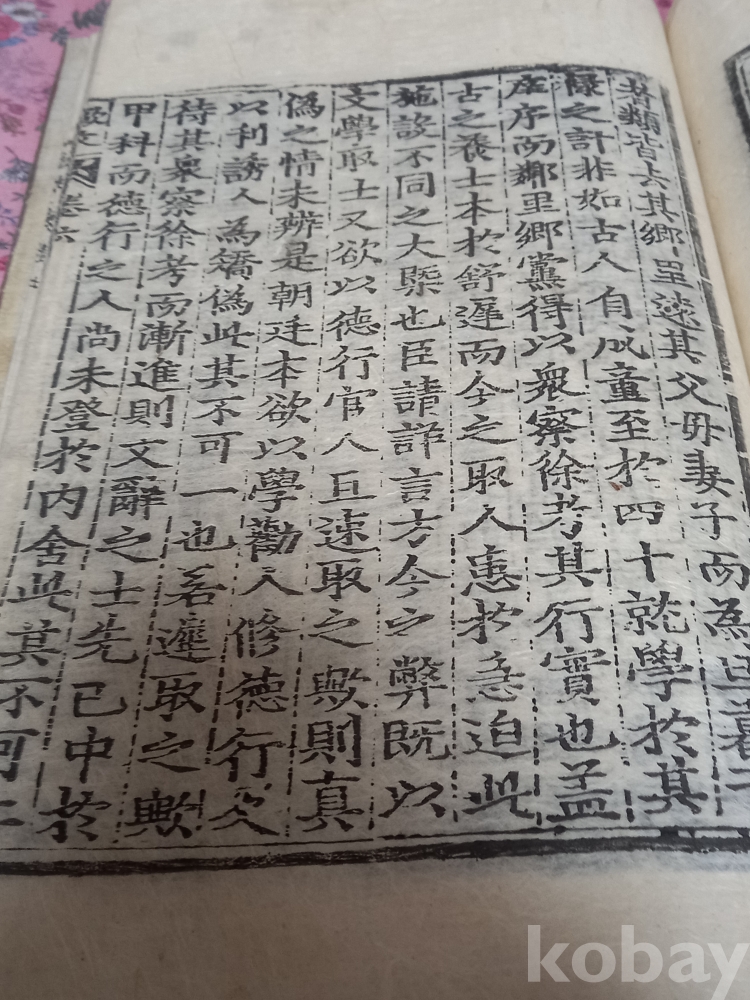 者類皆去其鄉里遠其父母妻子而為旦暮干
祿之計非如古人自成童至於四十就學於其
庠序而鄰里鄉黨得以眾察徐考其行實也盖
古之養士本於舒遲而今之取人患於急迫此
施設不同之大槩也臣請詳言方今之弊既以
文學取士又欲以德行官人且速取之歟則真
偽之情未辨是朝廷本欲以學勸人修德行反
以利誘人為矯偽此其不可一也若遲取之歟
待其眾察徐考而漸進則文辭之士先已中於
甲科而德行之人尚未登於內舍此其不可二
卷六
kobay